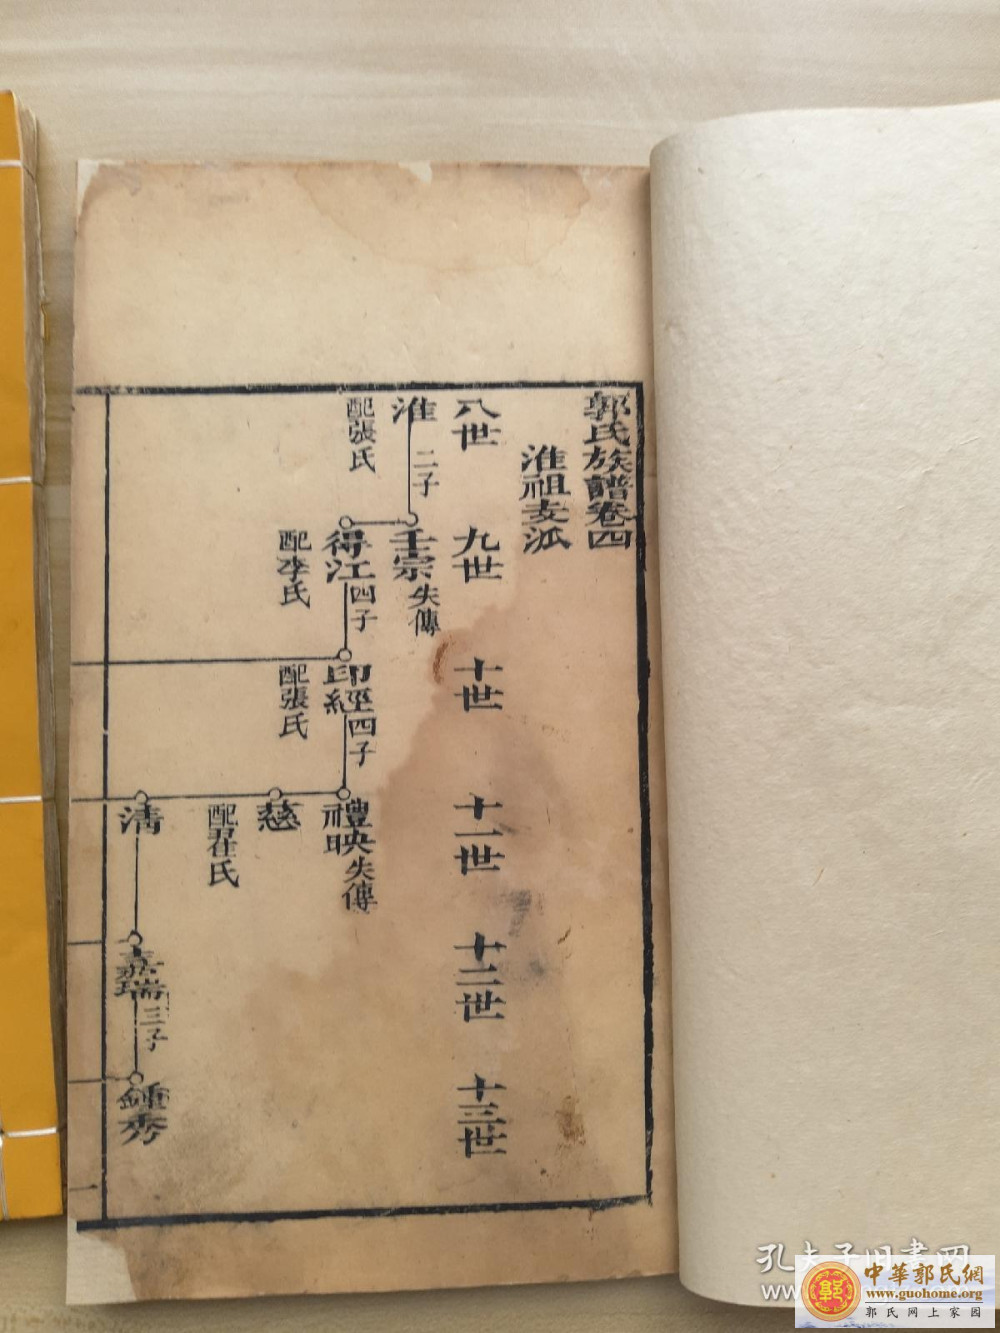 郭氏族譜卷四
淮祖支派
八世
九世
十世
十一世
十二世
十三世
淮
二子
配張氏
壬宗
失傳
得江
四子
配李氏
印經
四子
配張氏
禮映
失傳
慈
配君任氏
清
嘉瑞
三子
鍾秀
一
孔夫子旧书网
中華郭氏網
www.guohome.org
郭氏网上家园